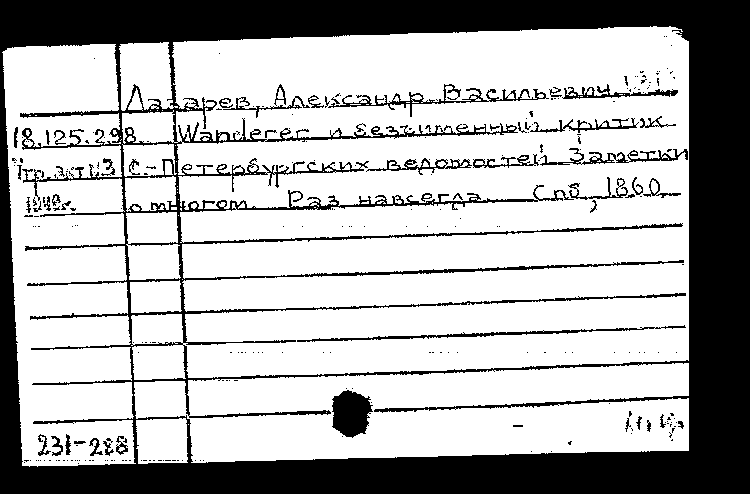 Лазарев, Александр Васильевич
18.125.298. Wanderer и безъименный критик
С.-Петербургских ведомостей Заметки
о многом. Раз навсегда. Спб, 1860
231-288